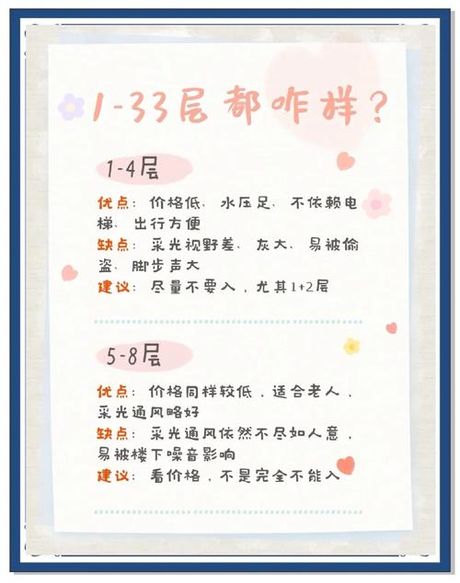 1-33层都咋样?
1-4层
优点：价格低、水压足、不依赖电
梯、出行方便
缺点：采光视野差、灰大、易被偷
盗、脚步声大
建议：尽量不要入，尤其1+2层
5-8层
优点：价格同样较低，适合老人，
采光通风略好
缺点：采光通风依然不尽如人意，
易被楼下噪音影响
建议：看价格，不是完全不能入